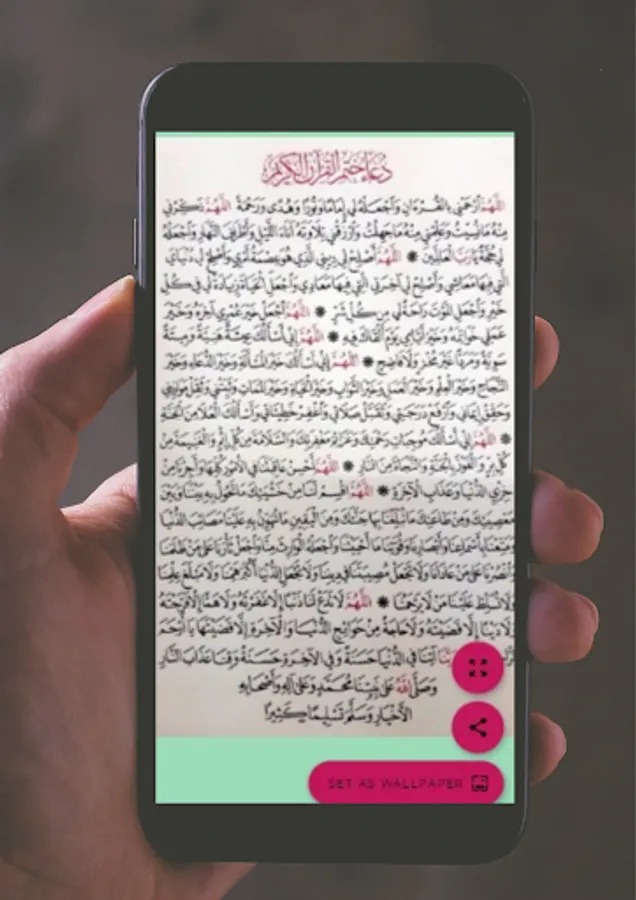 دعاء ختم القرآن الكريم
اللَّهُمَّ ارْحَمْنِي بِالقُرْءَانِ وَاجْعَلْهُ لِي إِمَامًا وَنُورًا وَهُدًى وَرَحْمَةً اللَّهُمَّ ذَكِّرْنِي
مِنْهُ مَانُسِّيتُ وَعَلِّمْنِي مِنْهُ مَاجَهِلْتُ وَارْزُقْنِي تِلَاوَتَهُ آنَاءَ اللَّيْلِ وَأَطْرَافَ النَّهَارِ وَاجْعَلْهُ
لِي حُجَّةً يَارَبَّ العَالَمِينَ * اللَّهُمَّ أَصْلِحْ لِي دِينِي الَّذِي هُوَ عِصْمَةُ أَمْرِي وَأَصْلِحْ لِي دُنْيَايَ
الَّتِي فِيهَا مَعَاشِي وَأَصْلِحْ لِي آخِرَتِي الَّتِي فِيهَا مَعَادِي وَاجْعَلِ الحَيَاةَ زِيَادَةً لِي فِي كُلِّ
خَيْرٍ وَاجْعَلِ المَوْتَ رَاحَةً لِي مِنْ كُلِّ شَرٍّ * اللَّهُمَّ اجْعَلْ خَيْرَ عُمْرِي آخِرَهُ وَخَيْرَ
عَمَلِي خَوَاتِمَهُ وَخَيْرَ أَيَّامِي يَوْمَ أَلْقَاكَ فِيهِ * اللَّهُمَّ إِنِّي أَسْأَلُكَ عِيشَةً هَنِيَّةً وَمِيتَةً
سَوِيَّةً وَمَرَدًّا غَيْرَ مُخْزٍ وَلَا فَاضِحٍ * اللَّهُمَّ إِنِّي أَسْأَلُكَ خَيْرَ المَسْأَلَةِ وَخَيْرَ الدُّعَاءِ وَخَيْرَ
النَّجَاحِ وَخَيْرَ العِلْمِ وَخَيْرَ العَمَلِ وَخَيْرَ الثَّوَابِ وَخَيْرَ الحَيَاةِ وَخَيْرَ المَمَاتِ وَثَبِّتْنِي وَثَقِّلْ مَوَازِينِي
وَحَقِّقْ إِيمَانِي وَارْفَعْ دَرَجَتِي وَتَقَبَّلْ صَلَاتِي وَاغْفِرْ خَطِيئَاتِي وَأَسْأَلُكَ العُلَا مِنَ الجَنَّةِ
* اللَّهُمَّ إِنِّي أَسْأَلُكَ مُوجِبَاتِ رَحْمَتِكَ وَعَزَائِمَ مَغْفِرَتِكَ وَالسَّلَامَةَ مِنْ كُلِّ إِثْمٍ وَالغَنِيمَةَ مِنْ
كُلِّ بِرٍّ وَالفَوْزَ بِالجَنَّةِ وَالنَّجَاةَ مِنَ النَّارِ * اللَّهُمَّ أَحْسِنْ عَاقِبَتَنَا فِي الأُمُورِ كُلِّهَا وَأَجِرْنَا مِنْ
خِزْيِ الدُّنْيَا وَعَذَابِ الآخِرَةِ * اللَّهُمَّ اقْسِمْ لَنَا مِنْ خَشْيَتِكَ مَاتَحُولُ بِهِ بَيْنَنَا وَبَيْنَ
مَعْصِيَتِكَ وَمِنْ طَاعَتِكَ مَاتُبَلِّغُنَا بِهَا جَنَّتَكَ وَمِنَ اليَقِينِ مَاتُهَوِّنُ بِهِ عَلَيْنَا مَصَائِبَ الدُّنْيَا
وَمَتِّعْنَا بِأَسْمَاعِنَا وَأَبْصَارِنَا وَقُوَّتِنَا مَا أَحْيَيْتَنَا وَاجْعَلْهُ الوَارِثَ مِنَّا وَاجْعَلْ ثَأْرَنَا عَلَى مَنْ ظَلَمَنَا
وَانْصُرْنَا عَلَى مَنْ عَادَانَا وَلَا تَجْعَلْ مُصِيبَتَنَا فِي دِينِنَا وَلَا تَجْعَلِ الدُّنْيَا أَكْبَرَ هَمِّنَا وَلَا مَبْلَغَ عِلْمِنَا
وَلَا تُسَلِّطْ عَلَيْنَا مَنْ لَا يَرْحَمُنَا * اللَّهُمَّ لَا تَدَعْ لَنَا ذَنْبًا إِلَّا غَفَرْتَهُ وَلَا هَمًّا إِلَّا فَرَّجْتَهُ
وَلَا دَيْنًا إِلَّا قَضَيْتَهُ وَلَا حَاجَةً مِنْ حَوَائِجِ الدُّنْيَا وَالآخِرَةِ إِلَّا قَضَيْتَهَا يَا أَرْحَمَ
آتِنَا فِي الدُّنْيَا حَسَنَةً وَفِي الآخِرَةِ حَسَنَةً وَقِنَا عَذَابَ النَّارِ
وَصَلَّى اللهُ عَلَى نَبِيِّنَا مُحَمَّدٍ وَعَلَى آلِهِ وَأَصْحَابِهِ
الأَخْيَارِ وَسَلَّمَ تَسْلِيمًا كَثِيرًا
SET AS WALLPAPER